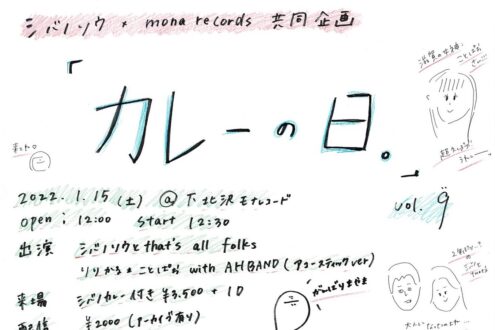 シバノソウ × mona records 共同企画
「カレーの日。」
vol. 9
2022. 1. 15 (土) @下北沢モナレコード
open : 12:00 start 12:30
出演 シバノソウとthat's all folks
りりかる*ことぱお with AHBAND (アコースティックver)
来場 シバノカレー付き ¥3,500 + 1D
配信 ¥2000 (アーカイブ有り)
がんばりますよ